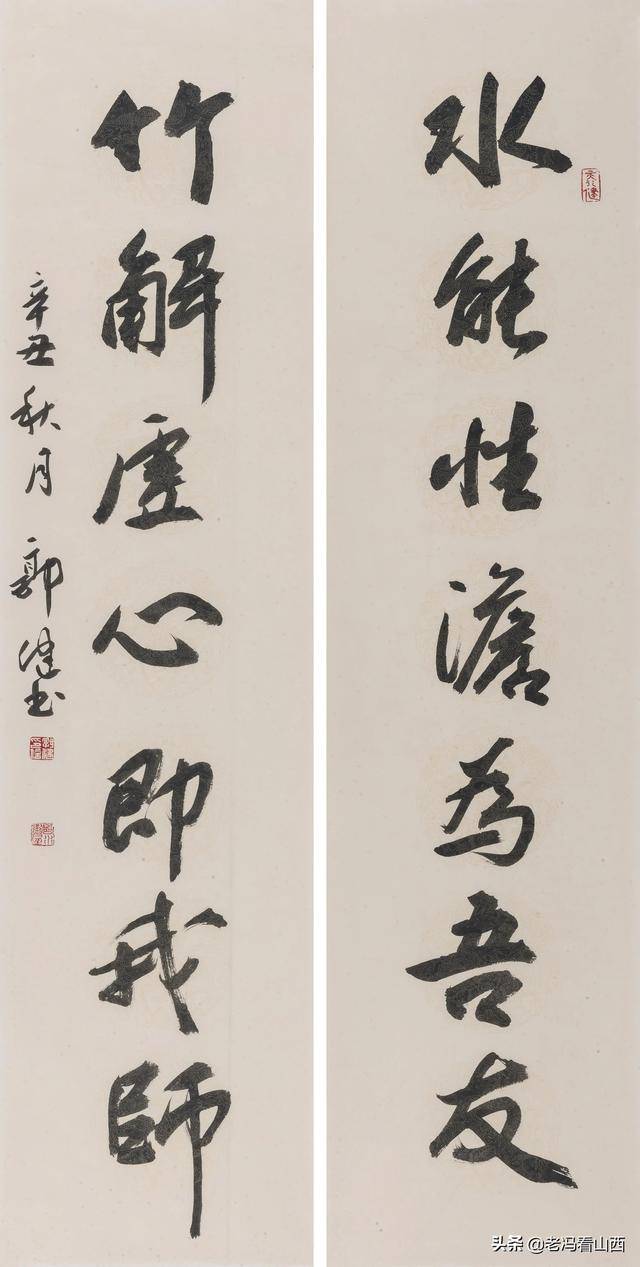 水能性澹為吾友
竹解虛心即我師
辛丑秋月郭健書
头条@老冯看山西